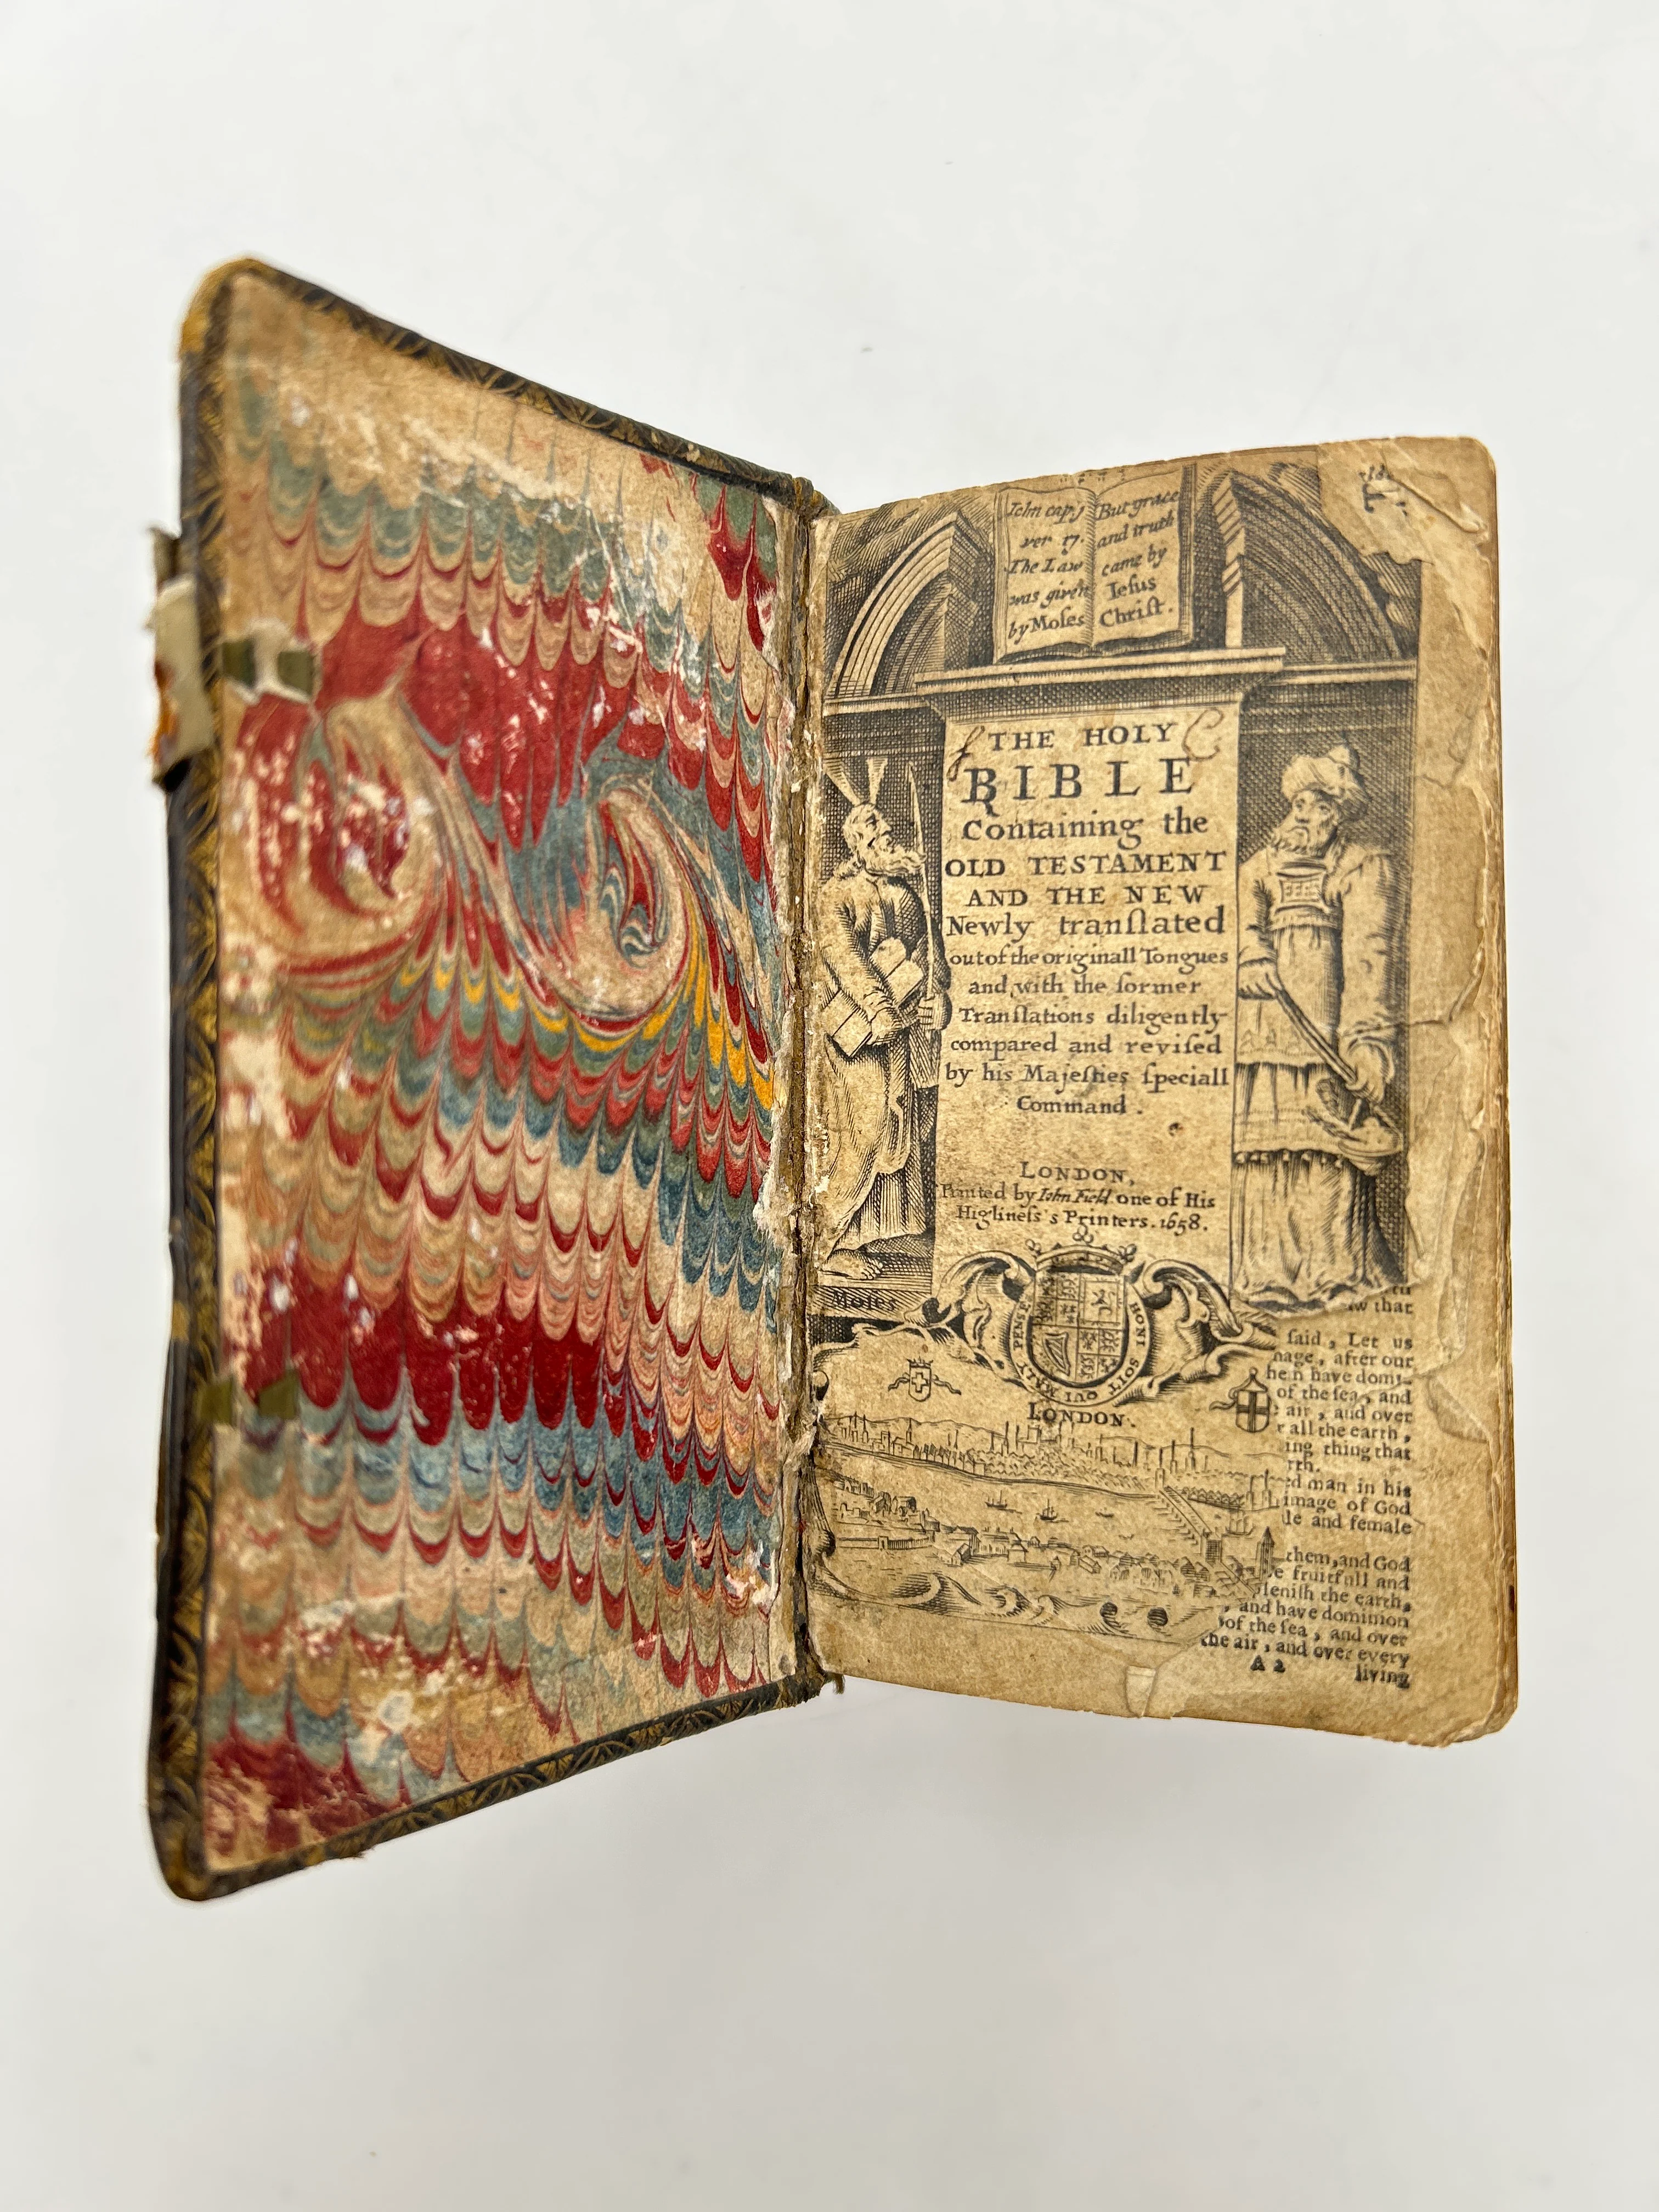 Iohn cap.j
ver 17.
The Law
was given
by Moses
But grace
and truth
came by
Iesus
Christ.
THE HOLY
BIBLE
Containing the
OLD TESTAMENT
AND THE NEW
Newly tranſlated
out of the originall Tongues
and with the former
Tranſlations diligently
compared and reviſed
by his Majeſties ſpeciall
Command.
LONDON,
Printed by Iohn Field one of His
Highneſs's Printers. 1658.
Moſes
HONI SOIT QUI MAL Y PENSE
LONDON.
that
ſaid, Let us
after our
have
of the ſea, and
air, and over
all the earth,
thing that
man in his
image of God
and female
them, and God
fruitfull and
the earth,
and have dominion
of the ſea, and over
the air, and over every
A 2
living